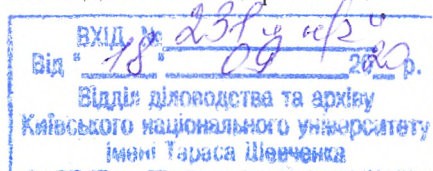 ВХІД. №
Від "18" 09 2020 р.
Відділ діловодства та архіву
Київського національного університету
імені Тараса Шевченка